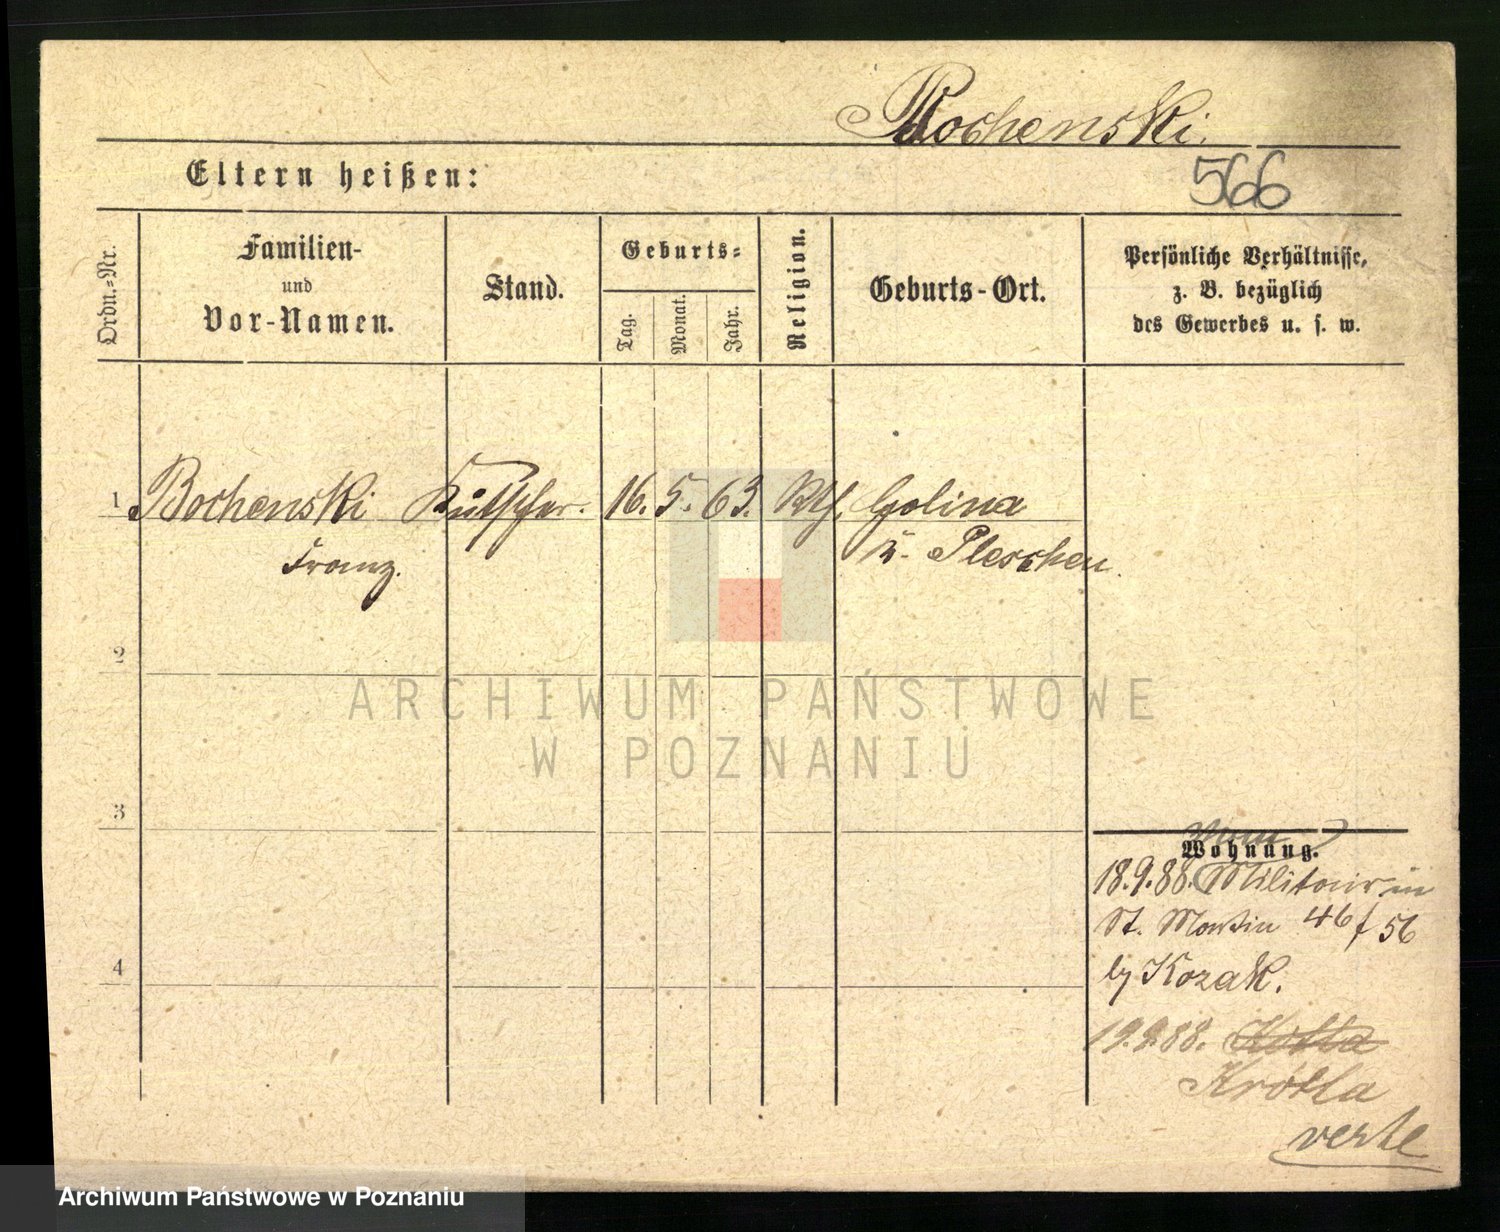 Bochenski.
566
Eltern heißen:
Ordn.-Nr.
Familien-
und
Vor-Namen.
Stand.
Geburts-
Tag.
Monat.
Jahr.
Religion.
Geburts-Ort.
Persönliche Verhältnisse,
z. B. bezüglich
des Gewerbes u. s. w.
1 Bochenski Kutscher. 16. 5. 63. Kth. Golina
Franz. Kr. Pleschen.
2
3
4
ARCHIWUM PAŃSTWOWE
W POZNANIU
Wohnung.
18.9.88. Militair in
St. Martin 46/56
by Kozak.
19.9.88. Kotla
Krótka
verte
Archiwum Państwowe w Poznaniu